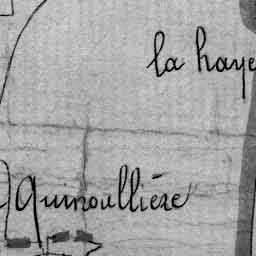 la haye
quinoullière